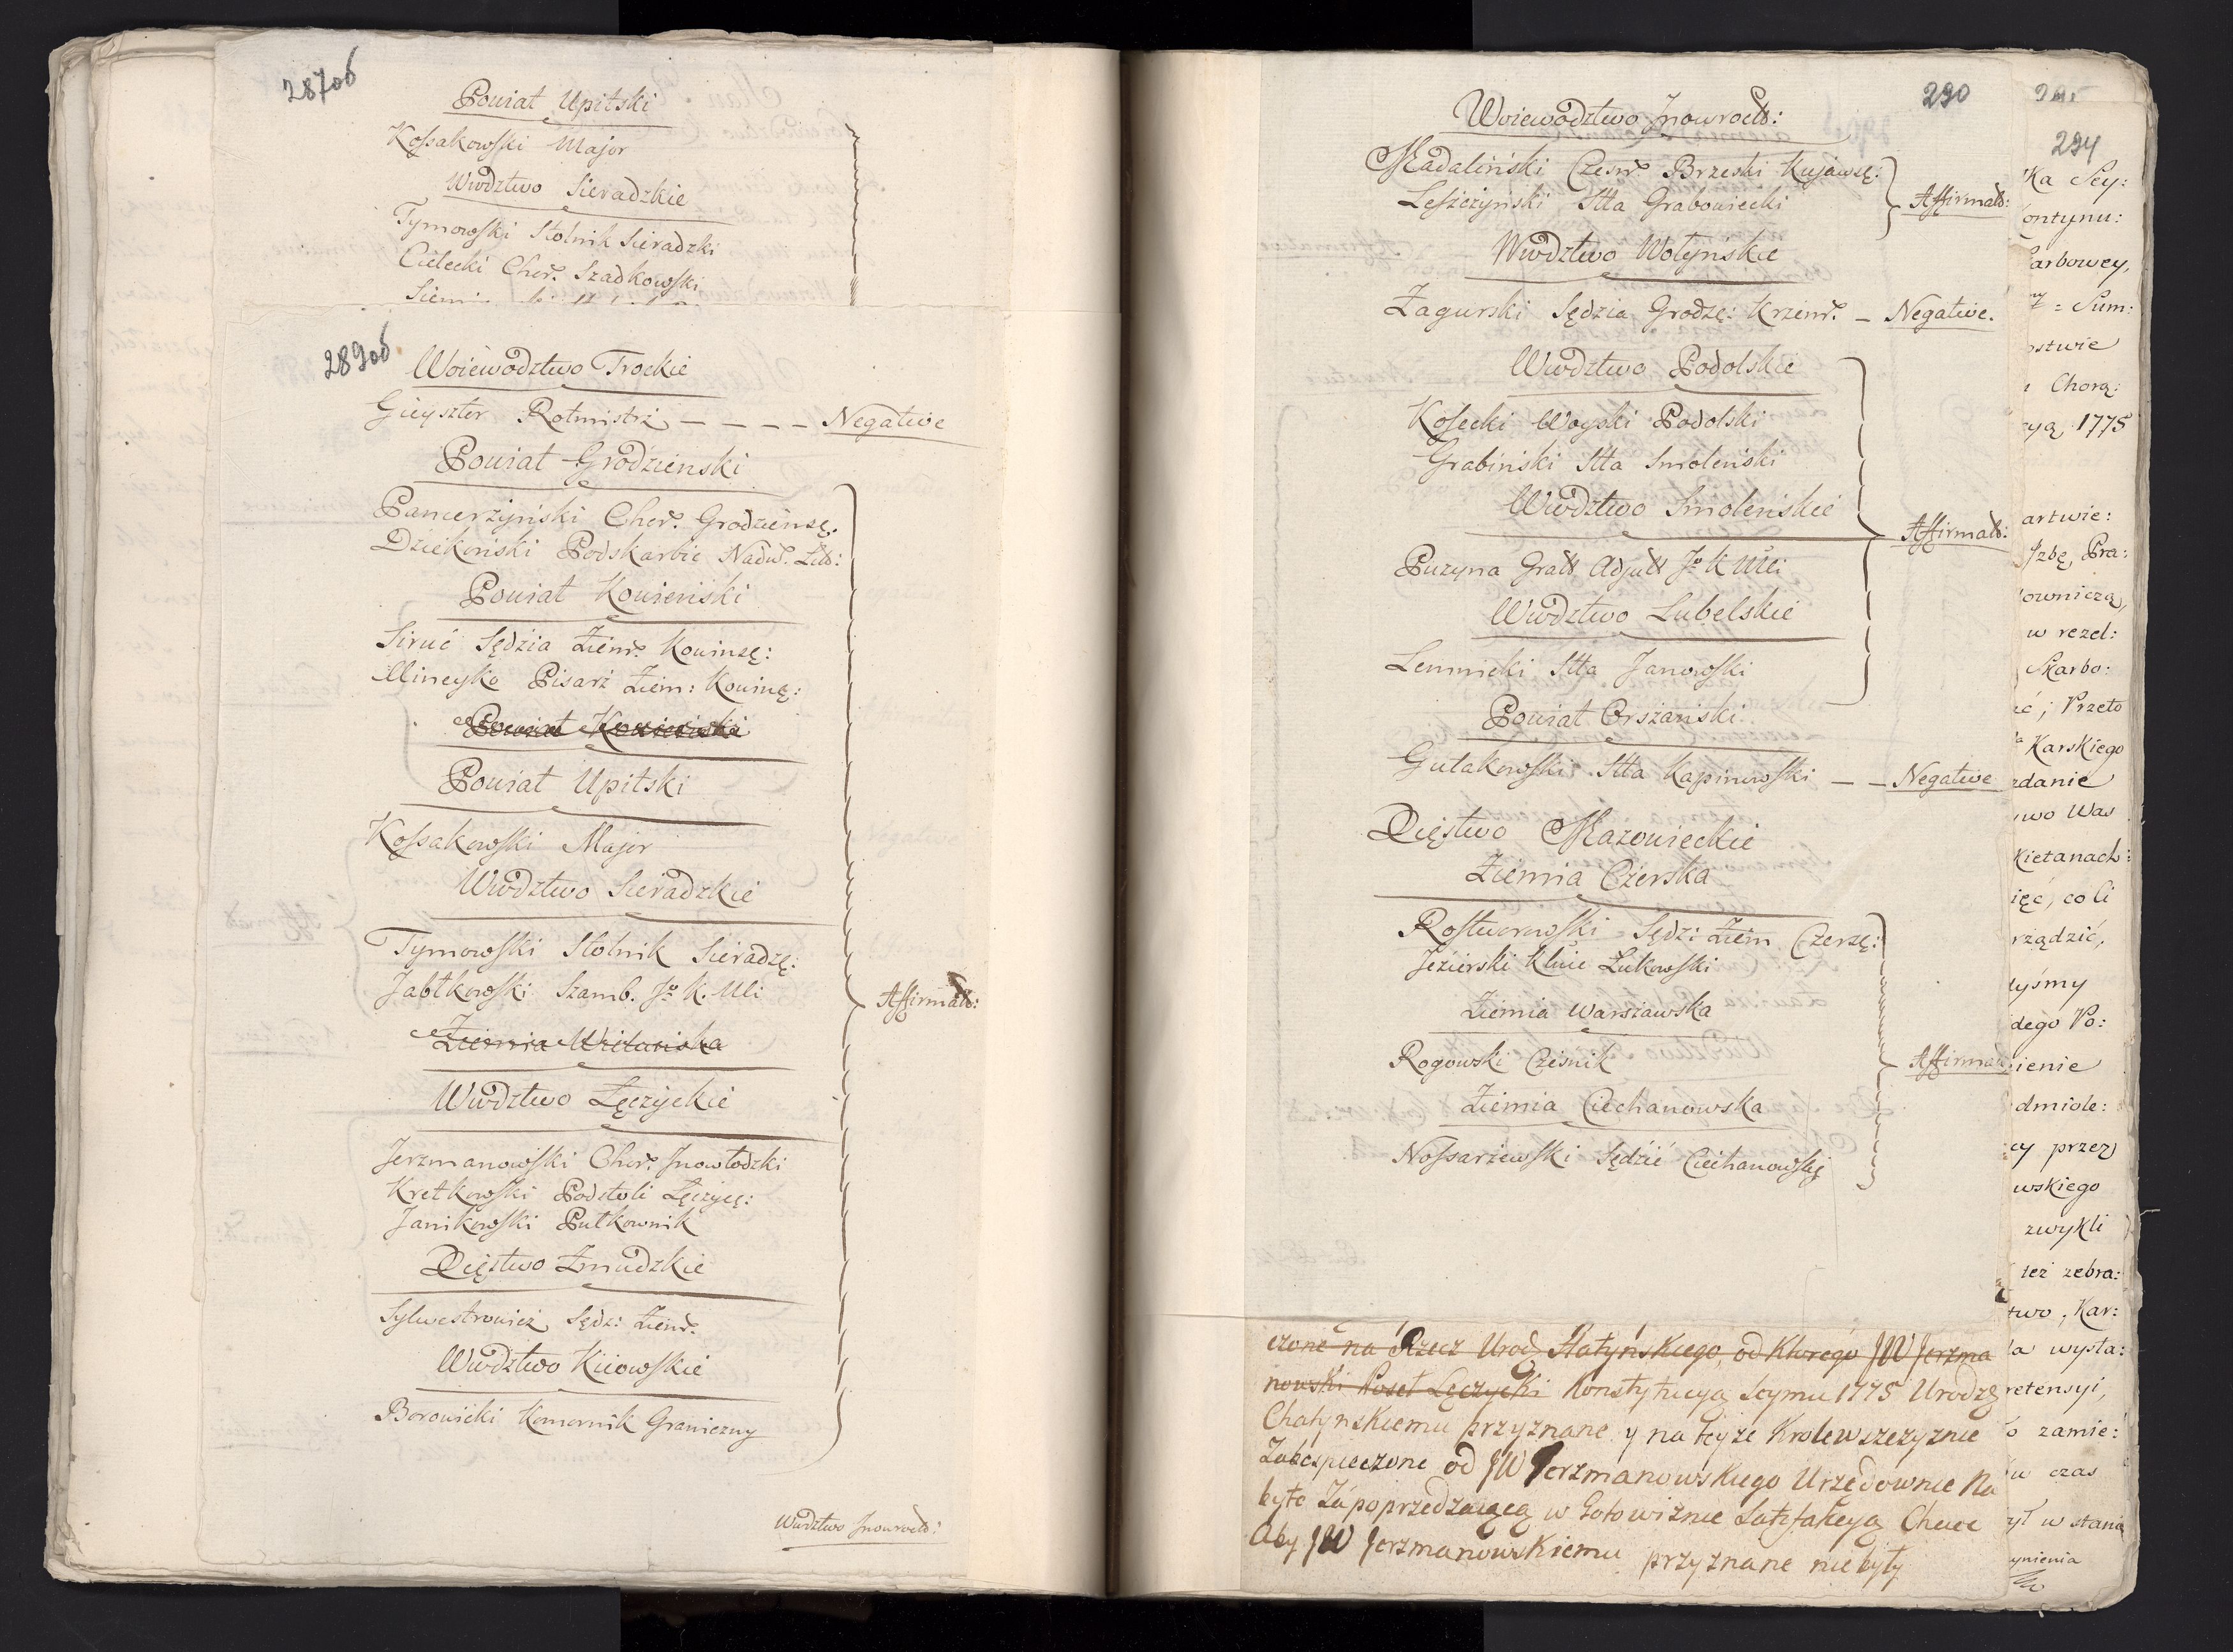 287об
Powiat Upitski
Kossakowski Major
Wwdztwo Sieradzkie
Tymowski Stolnik Sieradzki
Cielecki Chor. Szadkowski
289об
Woiewodztwo Trockie
Gieyszter Rotmistrz – – – – Negative
Powiat Grodzienski
Pancerzyński Chor. Grodzieńsę.
Dziekoński Podskarbie Nadw. Litt:
Powiat Kowieński
Siruć Sędzia Ziem. Kowinsę:
Mineyko Pisarz Ziem: Kowinę:
Powiat Kowieński
Powiat Upitski
Kossakowski Major
Wwdztwo Sieradzkie
Tymowski Stolnik Sieradzę:
Jabłkowski Szamb. Jo K. Mci
Affirmatt:
Ziemia Wieluńska
Wwdztwo Łęczyckie
Jerzmanowski Chor. Inowłodzki
Kretkowski Podstoli Łęczycę:
Janikowski Pułkownik
Xięstwo Zmudzkie
Sylwestrowicz Sędz: Ziem.
Wwdztwo Kiiowskie
Borowicki Komornik Graniczny
Wwdztwo Inowrocł:
290
Woiewodztwo Inowrocł:
Madaliński Czesn. Brzeski Kujawsę:
Leszczyński Stta Grabowiecki
Affirmatt:
Wwdztwo Wołyńskie
Zagurski Sędzia Grodzę: Krzem. – Negative.
Wwdztwo Podolskie
Kossecki Woyski Podolski
Grabiński Stta Smoleński
Wwdztwo Smoleńskie
Affirmatt:
Puzyna Grałł Adjutt Jo K Mci
Wwdztwo Lubelskie
Lemnicki Stta Janowski
Powiat Orszański
Gutakowski Stta Kapinowski – – Negative
Xięstwo Mazowieckie
Ziemia Czerska
Rostworowski Sędz: Ziem Czersę:
Jezierski Łukowski
Ziemia Warszawska
Rogowski Czesnik
Affirmatt
Ziemia Ciechanowska
Nossarzewski Sędzic Ciechanowsę
czone na Rzecz Urodz Hatyńskiego, od Ktorego JW Jerzma
nowski Poseł Łęczycki Konstytucyą Seymu 1775 Urodzę
Chatynskiemu przyznane y na teyze Krolewszczyznie
Zabespieczone od JW Jerzmanowskiego Urzędownie Na
byte Za poprzedzaiącą w Gotowiznie Satisfakcyą Chcece
Aby JW Jerzmanowskiemu przyznane nie były
294
ka Sey:
ontynu:
arbowey,
= Sum:
stwie
Chorą:
yą 1775
artwie:
Jzbę, Pra:
owniczą,
w rezol:
Skarbo:
ić; Przeto
Karskiego
danie
wo Was
kietanach:
ięć, co li
rządzić,
yśmy
dego Po:
ienie
dmiole:
cy przez
wskiego
zwykli
też zebra:
two, Kar:
a wysta:
retensyi,
o zamie:
w czas
ył w stanią
ynienia